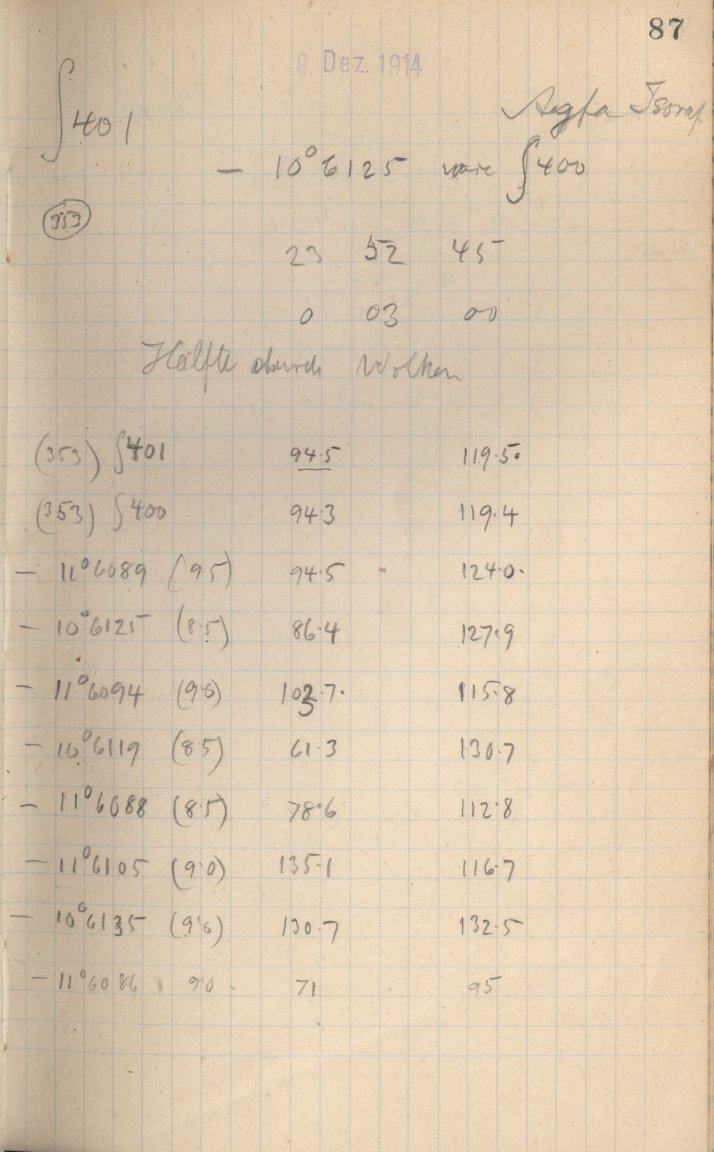 87
8. Dez. 1914
∫401
Agfa Isorap.
— 10°6125 wie ∫400
353
23 52 45
0 03 00
Hälfte durch Wolken
(353) ∫401 94.5 119.5.
(353) ∫400 94.3 119.4
— 11°6089 (9.5) 94.5 124.0.
— 10°6125 (8.5) 86.4 127.9
— 11°6094 (9.6) 103.7. 115.8
— 10°6119 (8.5) 61.3 130.7
— 11°6088 (8.5) 78.6 112.8
— 11°6105 (9.0) 135.1 116.7
— 10°6135 (9.6) 130.7 132.5
— 11°6086 9.0 71 95